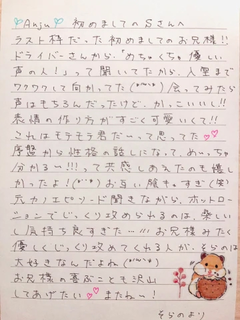 Anju 初めましてのSさんへ
ラスト枠だった初めましてのお兄様!!
ドライバーさんから、「めちゃくちゃ優しい
声の人!」って聞いてたから、入室まで
ワクワクして向かってた(*^^*)会ってみたら
声はもちろんだったけど、かっこいいし!!
表情の作り方がすごく可愛くて!!
これはモテモテ君だ〜って思ってた
序盤から性格の話しになって、めっちゃ
分かる〜!!!って共感しあえたのも嬉し
かったよ!お互い服もすぎ(笑)
元カノエピソード聞きながら、ホットロー
ションでじっくり攻められるのは、楽しい
し気持ち良すぎた…!!!お兄様みたく
優しくじっくり攻めてくれる人が、そらのは
大好きなんだよね(*^^*)
お兄様の喜ぶことも沢山
してあげたい またね〜!
そらのより